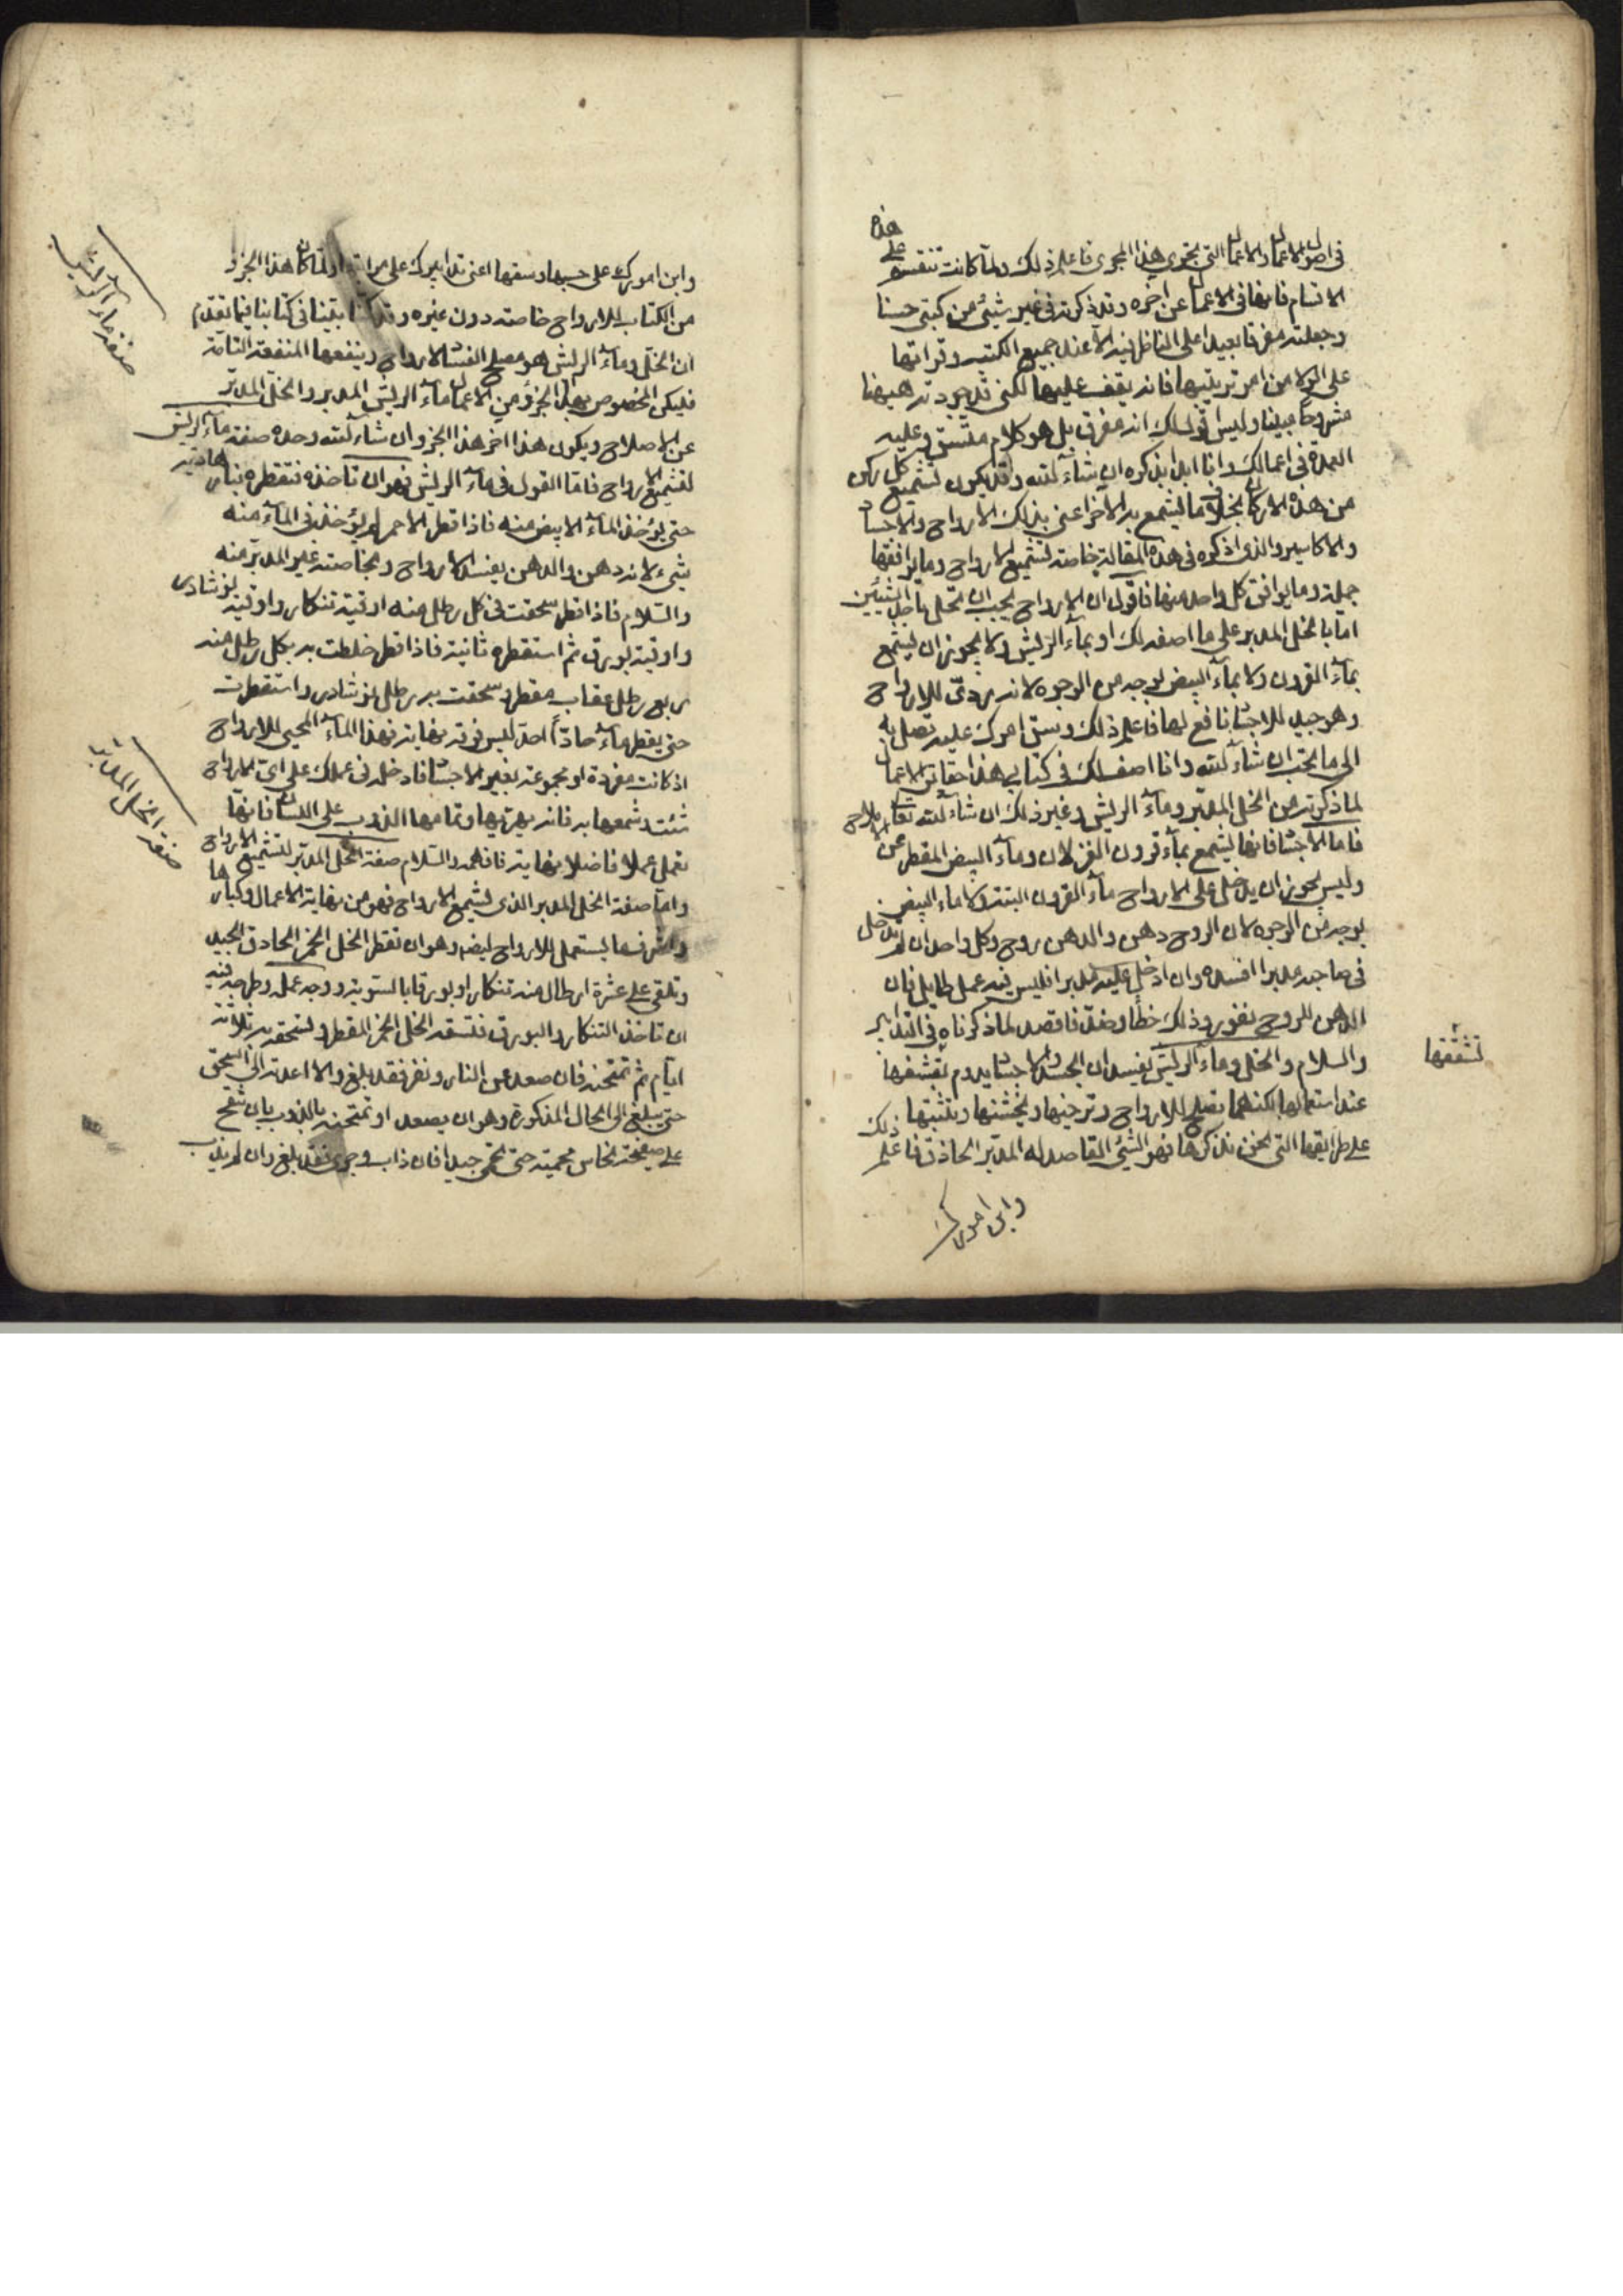 في اصول الاعمال والاعمال التي تجري هذا المجرى فاعلم ذلك ولما كانت تنقسم على هذه
الاقسام فانها في الاعمال عن اخره وقد ذكرته في غير شيئ من كتبي حسنا
وجعلته مفرقا بعيدا على الناظر فيه الا عند جميع الكتب وقراتها
على الولا من امر ترتيبها فانه يقف عليها لكني قد جودته هيهنا
مشروحا مبينا وليس اقول لك انه مفرق بل هو كلام متسق وعليه
العمدة في اعمالك وانا ابدا بذكره ان شاء الله وقد يكون تشميع كل ركن
من هذه الاركان بخلاف ما يشمع به الاخر اعني بذلك الارواح والاجساد
والاكاسير والذي اذكره في هذه المقالة خاصة تشميع الارواح وما يوافقها
جملة وما يوافق كل واحد منها فاقول ان الارواح يجب ان تحل باحد الشيئين
اما بالخل المدبر على ما اصفه لك او بماء الريش ولا يجوز ان يشمع
بماء القرون ولا بماء البيض بوجه من الوجوه لانه ردئ للارواح
وهو جيد للاجساد نافع لها فاعلم ذلك وسق امرك عليه تصل به
الى ما تحب ان شاء الله وانا اصف لك في كتابي هذا حقائق الاعمال
لما ذكرته من الخل المدبر وماء الريش وغير ذلك ان شاء الله تعالى
فاما الاجساد فانها تشمع بماء قرون الغزلان وماء البيض المقطر عن
وليس يجوز ان يدخل على الارواح ماء القرون البتة ولا ماء البيض
بوجه من الوجوه لان الروح دهن والدهن روح وكل واحد ان لم يدخل
في صاحبه مدبرا افسده وان ادخل عليه مدبرا فليس فيه عمل طايل فان
الدهن للروح نفور وذلك خطا وضد فاقصد لما ذكرناه في التدابير
والسلام والخل وماء الريش يفسدان الجسد والاجساد يدوم تقشفها
عند استعمالها لكنهما يصلح للارواح وترخيها وتخشنها وتثبتها
على طرايقها التي نحن نذكرها فهو الشيئ القاصد له المدبر الحاذق فاعلم ذلك
وابن امورك
تشققها
وابن امورك على حسبها وسقها اعني تدابيرك على مراتبها ولما كان هذا الجزو
من الكتاب للارواح خاصة دون غيره وقد كنا بينا في كتابنا فيما تقدم
ان الخل وماء الريش هو مصلح الفساد الارواح وينفعها المنفعة التامة
فليكن المخصوص بهذا الجزو من الاعمال ماء الريش المدبر والخل المدبر
عن الاصلاح ويكون هذا اخر هذا الجزو ان شاء الله وحده صفة ماء الريش
لتشميع الارواح فاما القول في ماء الريش فهو ان تاخذه فتقطره بنار هادية
حتى يؤخذ الماء الابيض منه فاذا قطر الاحمر لم يؤخذ في الماء منه
شيء لانه دهن والدهن يفسد الارواح وبخاصته غير المدبر منه
والسلام فاذا قطر سحقت في كل رطل منه اوقية تنكار واوقية نوشادر
واوقية بورق ثم استقطره ثانية فاذا قطر خلطت به بكل رطل منه
ربع رطل عقاب مقطر وسحقت به رطل نوشادر واستقطرت
حتى يقطر ماء حادا احد ليس فوقه نهاية فهذا الماء المحيي للارواح
اذ كانت مفردة او مجموعة بغير الاجساد فادخله في عملك على اي الارواح
شئت وشمعها به فانه يهريها وتمامها الذوب على اللسان فانها
تعمل عملا فاضلا نهاية فافهمه والسلام صفة الخل المدبر لتشميع الارواح
واما صفة الخل المدبر الذي لتشميع الارواح فهو من نهاية الاعمال وكبارها
واشرفها يستعمل للارواح ايضا وهو ان تقطر الخل الخمر الحاذق الجيد
وتلقي على عشرة ارطال منه تنكار او بورقا بالسوية ووجه عمله وطرحه فيه
ان تاخذ التنكار والبورق فتسقه الخل الخمر المقطر وتسحقه به ثلاثة
ايام ثم تمتحنه فان صعد عن النار ونفر فقد بلغ والا اعدته الى السحق
حتى يبلغ الى الحال المذكورة وهو ان يصعد او تمتحنه بالذوب بان تطرح
على صفيحة نحاس محمية حتى تحمى جيدا فان ذاب وجرى فقد بلغ وان لم يذب
صفة ماء الريش
صفة الخل المدبر